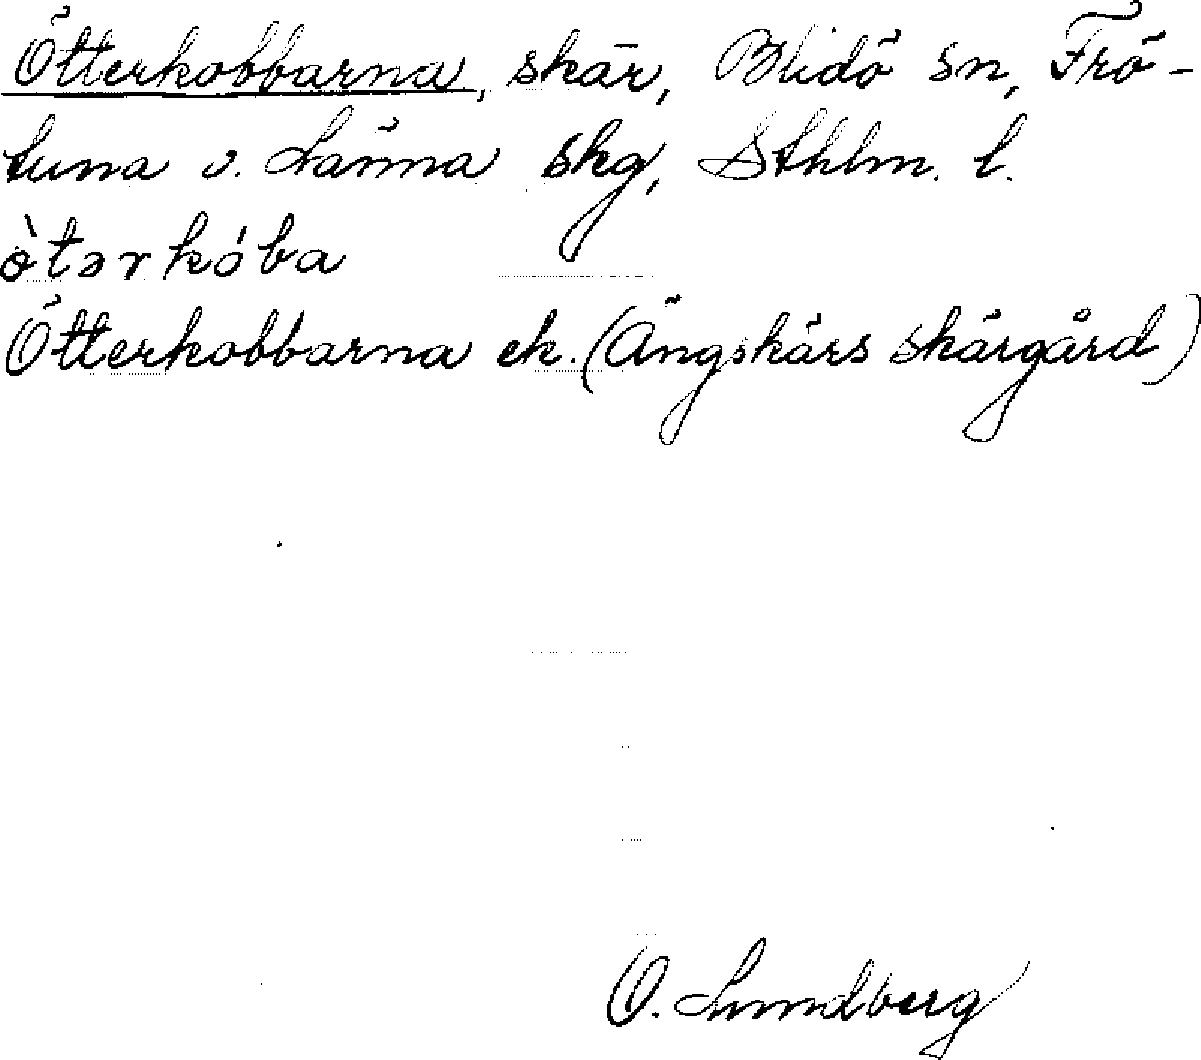 Ötterkobbarna, skär, Blidö sn, Frö-
tuna o. Länna skg, Sthlm. l.
òtərkóba
Ötterkobbarna ek. (Ängskärs skärgård)
O. Lundberg